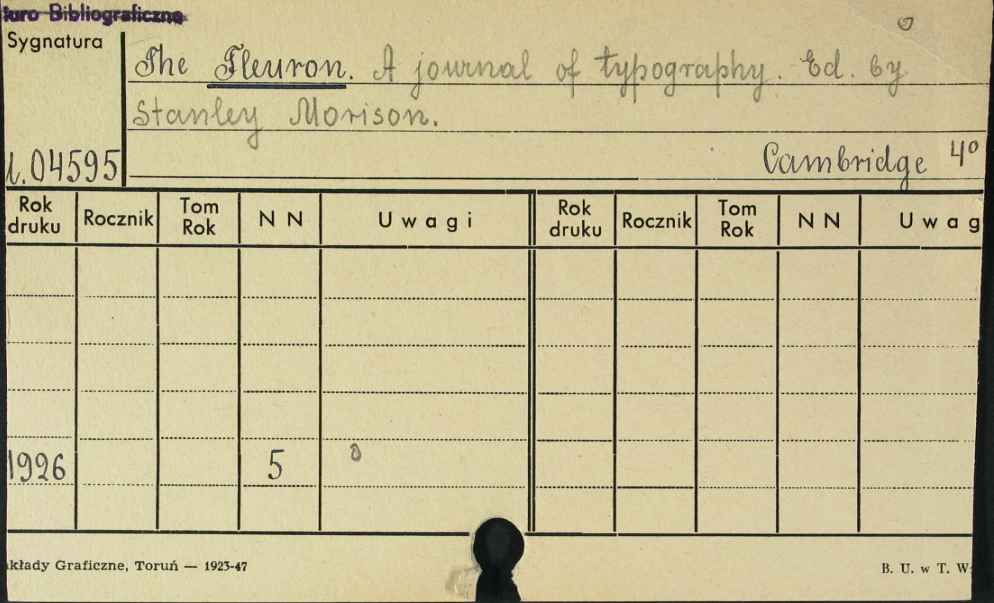 iuro Bibliograficzne
Sygnatura
The Fleuron. A journal of typography. Ed. by
Stanley Morison.
04595
Cambridge 4º
Rok druku Rocznik Tom Rok N N Uwagi Rok druku Rocznik Tom Rok N N Uwag
1926 5
kłady Graficzne, Toruń — 1923-47
B. U. w T. W